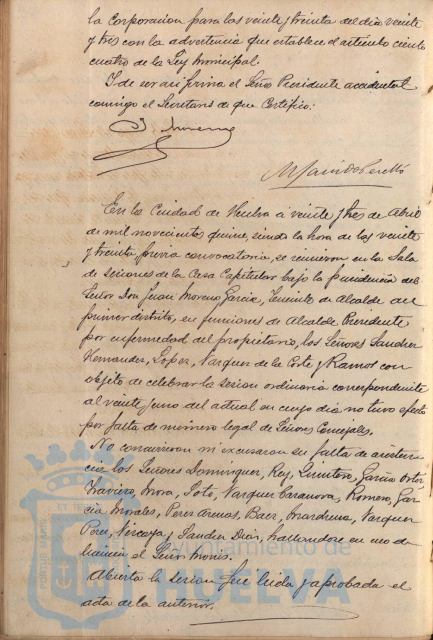 la Corporacion para las veinte y treinta del dia veinte
y tres con la advertencia que establece el articulo ciento
cuatro de la Ley Municipal.
Y de ser asi firma el Señor Presidente accidental
conmigo el Secretario de que Certifico:
J. Moreno
En la Ciudad de Huelva á veinte y tres de Abril
de mil novecientos quince, siendo la hora de las veinte
y treinta previa convocatoria, se reunieron en la Sala
de sesiones de la Casa Capitular bajo la presidencia del
Señor Don Juan Moreno Garcia, Teniente de Alcalde del
primer distrito, en funciones de Alcalde Presidente
por enfermedad del propietario, los Señores Sanchez
Hernandez, Lopez, Vazquez de la Corte y Ramos con
objeto de celebrar la sesion ordinaria correspondiente
al veinte y uno del actual en cuyo dia no tuvo efecto
por falta de número legal de Señores Concejales.
No concurrieron ni excusaron su falta de asisten
cia los Señores Dominguez, Rey, Quintero, Garcia Ortiz
Traviero, Mora, Soto, Vazquez Casanova, Romero, Gar
cia Morales, Perez Arenas, Baez, Vazquez
Perez, Vizcaya y Sanchez Diaz, hallandose en uso de
licencia el Señor
Abierta la sesion fue leida y aprobada el
acta de la anterior.
Ayuntamiento de
HUELVA